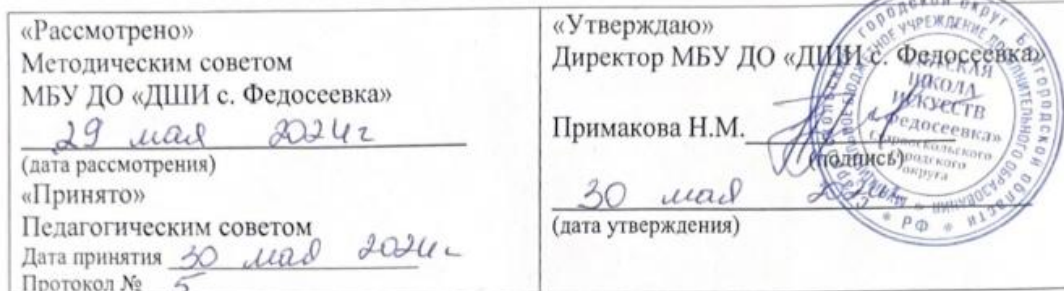 «Рассмотрено»
Методическим советом
МБУ ДО «ДШИ с. Федосеевка»
29 мая 2024г
(дата рассмотрения)
«Принято»
Педагогическим советом
Дата принятия 30 мая 2024г
Протокол № 5
«Утверждаю»
Директор МБУ ДО «ДШИ с. Федосеевка»
Примакова Н.М.
(подпись)
30 мая 2024г
(дата утверждения)
ШКОЛА
ИСКУССТВ
Федосеевка»
городского
округа